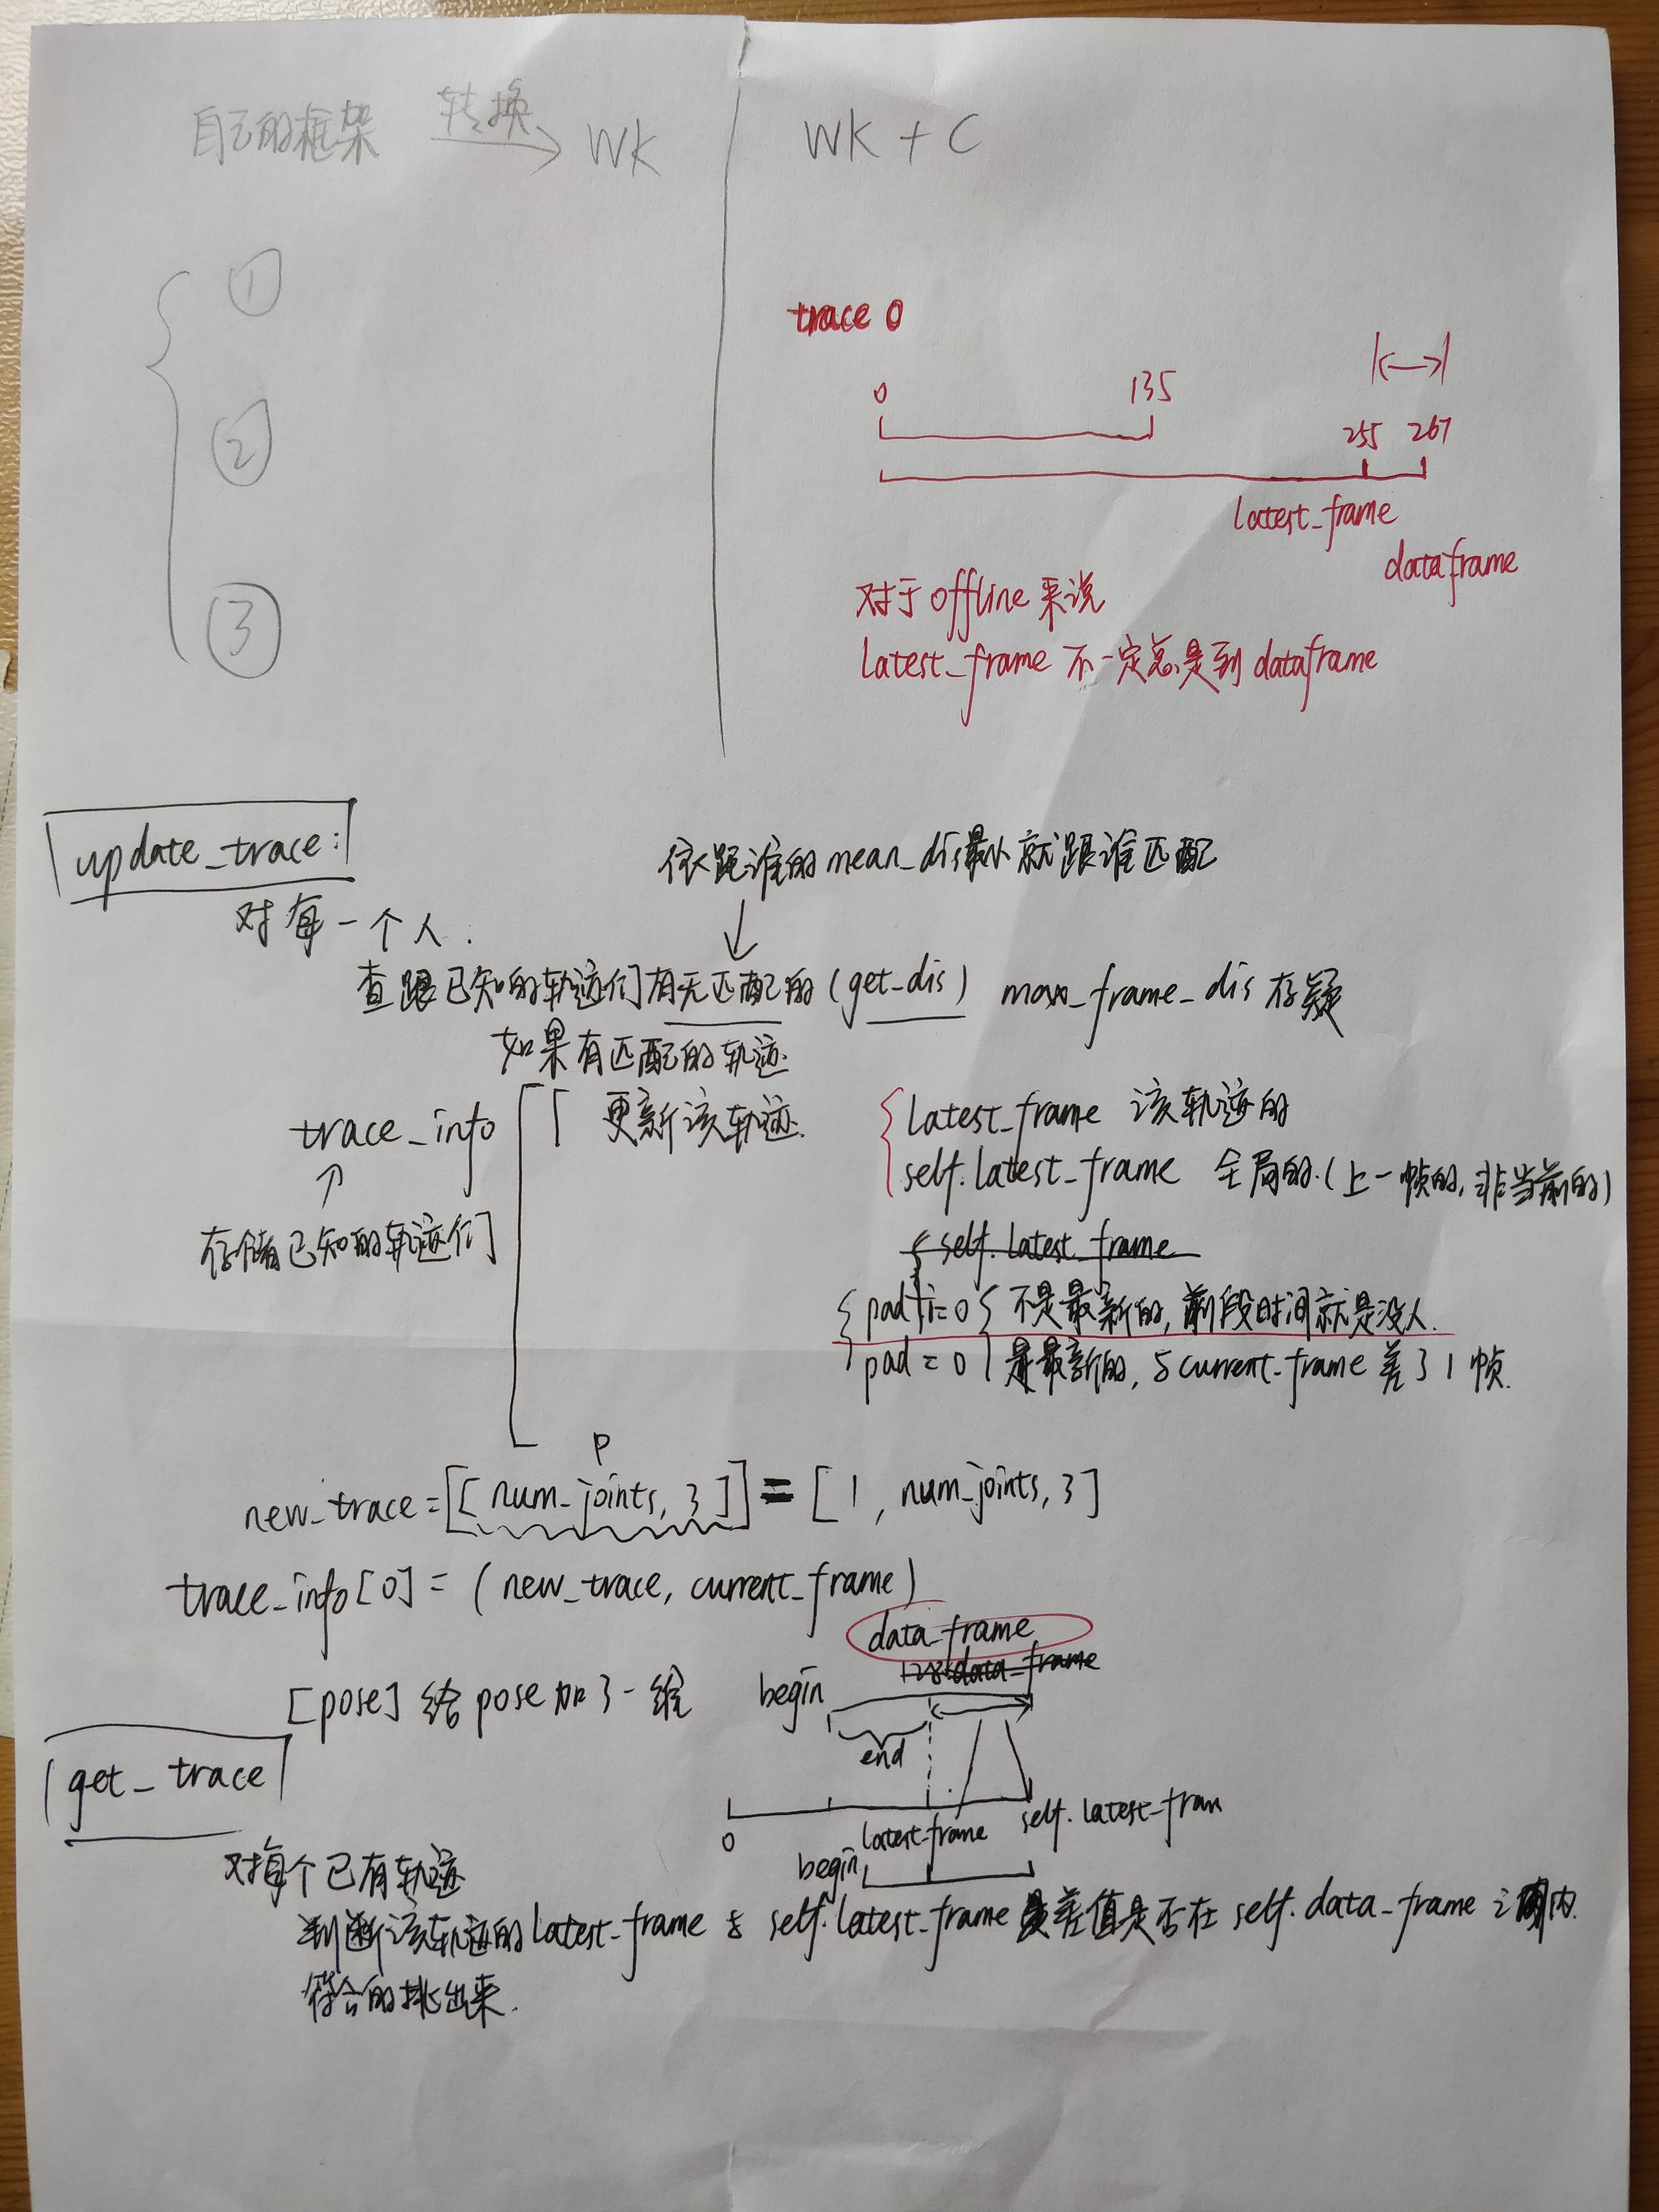 自己的框架 转换 WK
WK + C
①
②
③
trace 0
0 135
255 267
latest_frame
dataframe
对于offline来说
latest_frame 不一定总是到dataframe
update_trace:
对每一个人.
依距谁的mean_dis最小就跟谁匹配
查跟已知的轨迹们有无匹配的(get_dis) max_frame_dis 存疑
如果有匹配的轨迹
trace_info
更新该轨迹.
存储已知的轨迹们
latest_frame 该轨迹的
self.latest_frame 全局的.(上一帧的,非当前的)
self.latest_frame
pad != 0 不是最新的,前段时间就是没人.
pad = 0 是最新的,与current_frame 差了1帧.
P
new_trace = [[num_joints, 3]] = [1, num_joints, 3]
trace_info[0] = (new_trace, current_frame)
[pose] 给pose加了一维
data_frame
data_frame
begin
end
0 latest_frame self.latest_fram
begin
get_trace
对每个已有轨迹
判断该轨迹的latest_frame 与 self.latest_frame 差值是否在 self.data_frame 之内.
符合的挑出来.